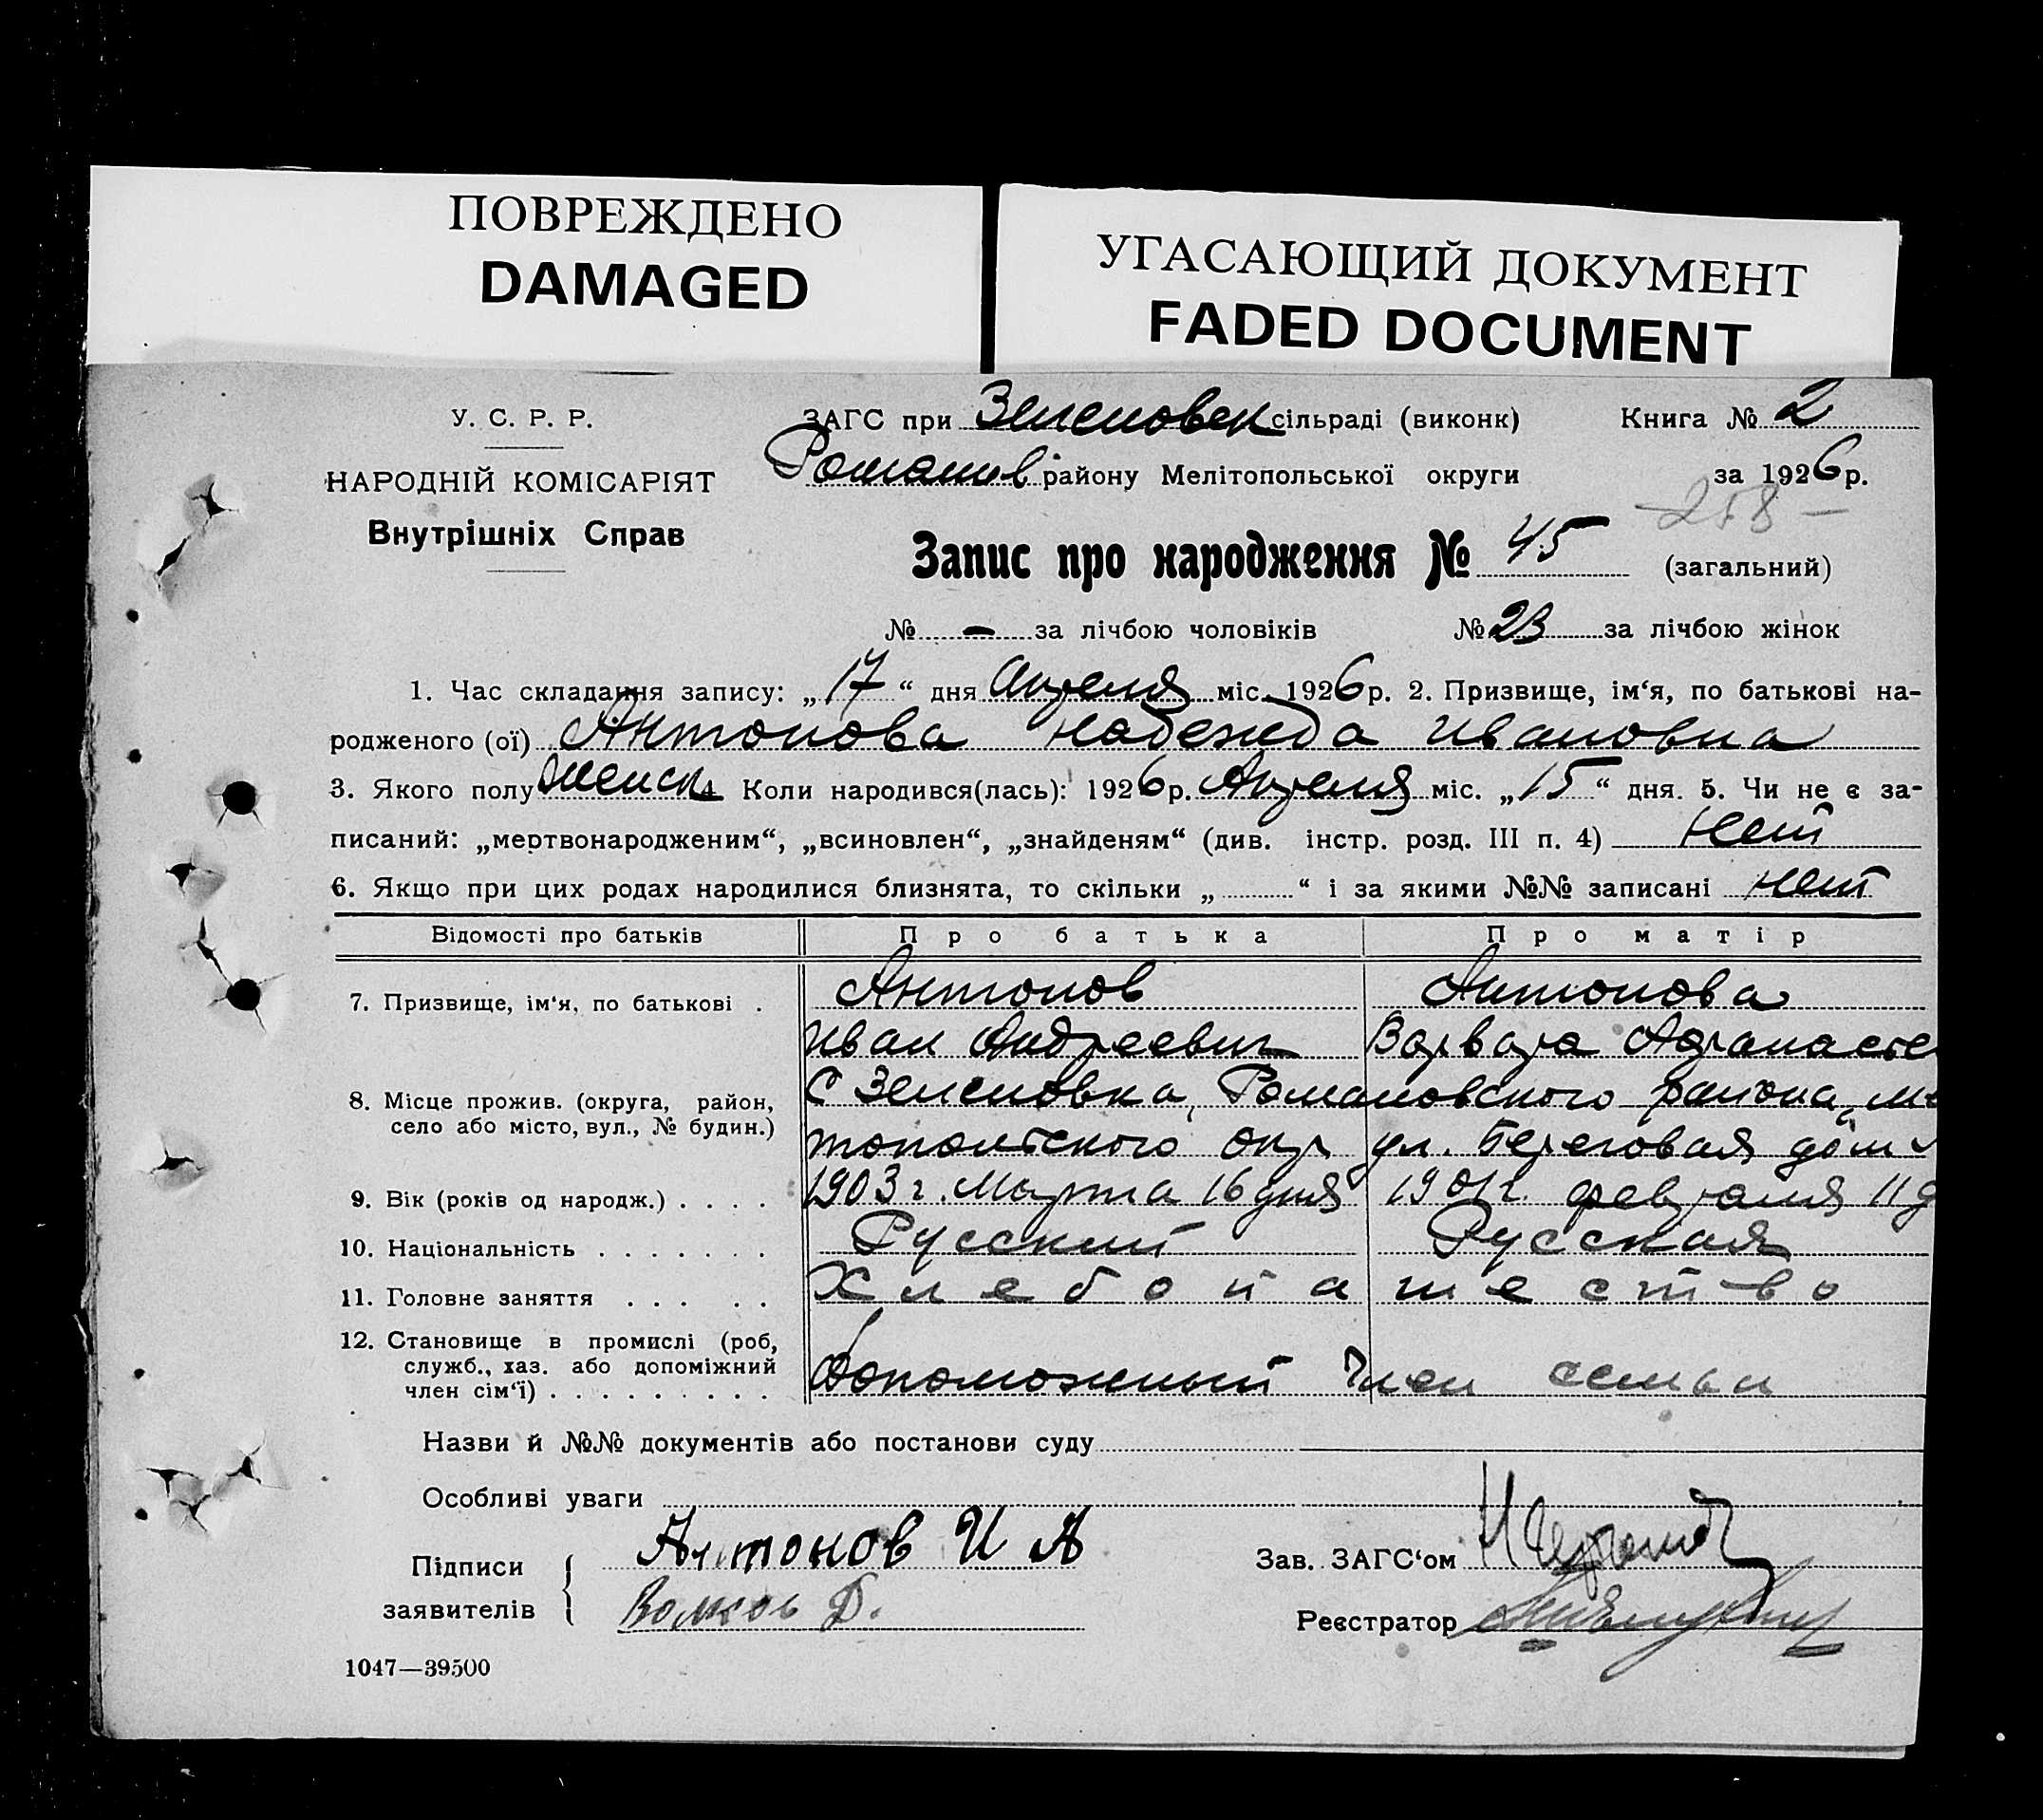 ПОВРЕЖДЕНО
DAMAGED
УГАСАЮЩИЙ ДОКУМЕНТ
FADED DOCUMENT
У. С. Р. Р.
НАРОДНІЙ КОМІСАРІЯТ
Внутрішніх Справ
ЗАГС при Зеленовск сільраді (виконк) Книга № 2
Романов району Мелітопольської округи за 1926 р.
258 —
Запис про народження № 45 (загальний)
№ — за лічбою чоловіків № 23 за лічбою жінок
1. Час складання запису: „17“ дня Апреля міс. 1926 р. 2. Призвище, ім‘я, по батькові на-
родженого (ої) Антонова Надежда Ивановна
3. Якого полу Женск 4. Коли народився(лась): 1926 р. Апреля міс. „15“ дня. 5. Чи не є за-
писаний: „мертвонародженим“, „всиновлен“, „знайденям“ (див. інстр. розд. III п. 4) Нет
6. Якщо при цих родах народилися близнята, то скільки „ “ і за якими №№ записані Нет
Відомості про батьків Про батька Про матір
7. Призвище, ім‘я, по батькові . Антонов Антонова
Иван Андреевич Варвара Афанасье
8. Місце прожив. (округа, район, село або місто, вул., № будин.) С Зеленовка, Романовского района, Ме
топольского окр ул. Береговая дом
9. Вік (років од народж.) . . . . 1903 г. Марта 16 дня 1901 г. февраля 11 д
10. Національність . . . . . . . Русский Русская
11. Головне заняття . . . . . Хлебопашество
12. Становище в промислі (роб, служб., хаз. або допоміжний член сім‘ї) . . . . . . . . . Допоможный Член семьи
Назви й №№ документів або постанови суду
Особливі уваги
Підписи заявителів Антонов И А
Волков Д.
Зав. ЗАГС‘ом
Реєстратор
1047—39500